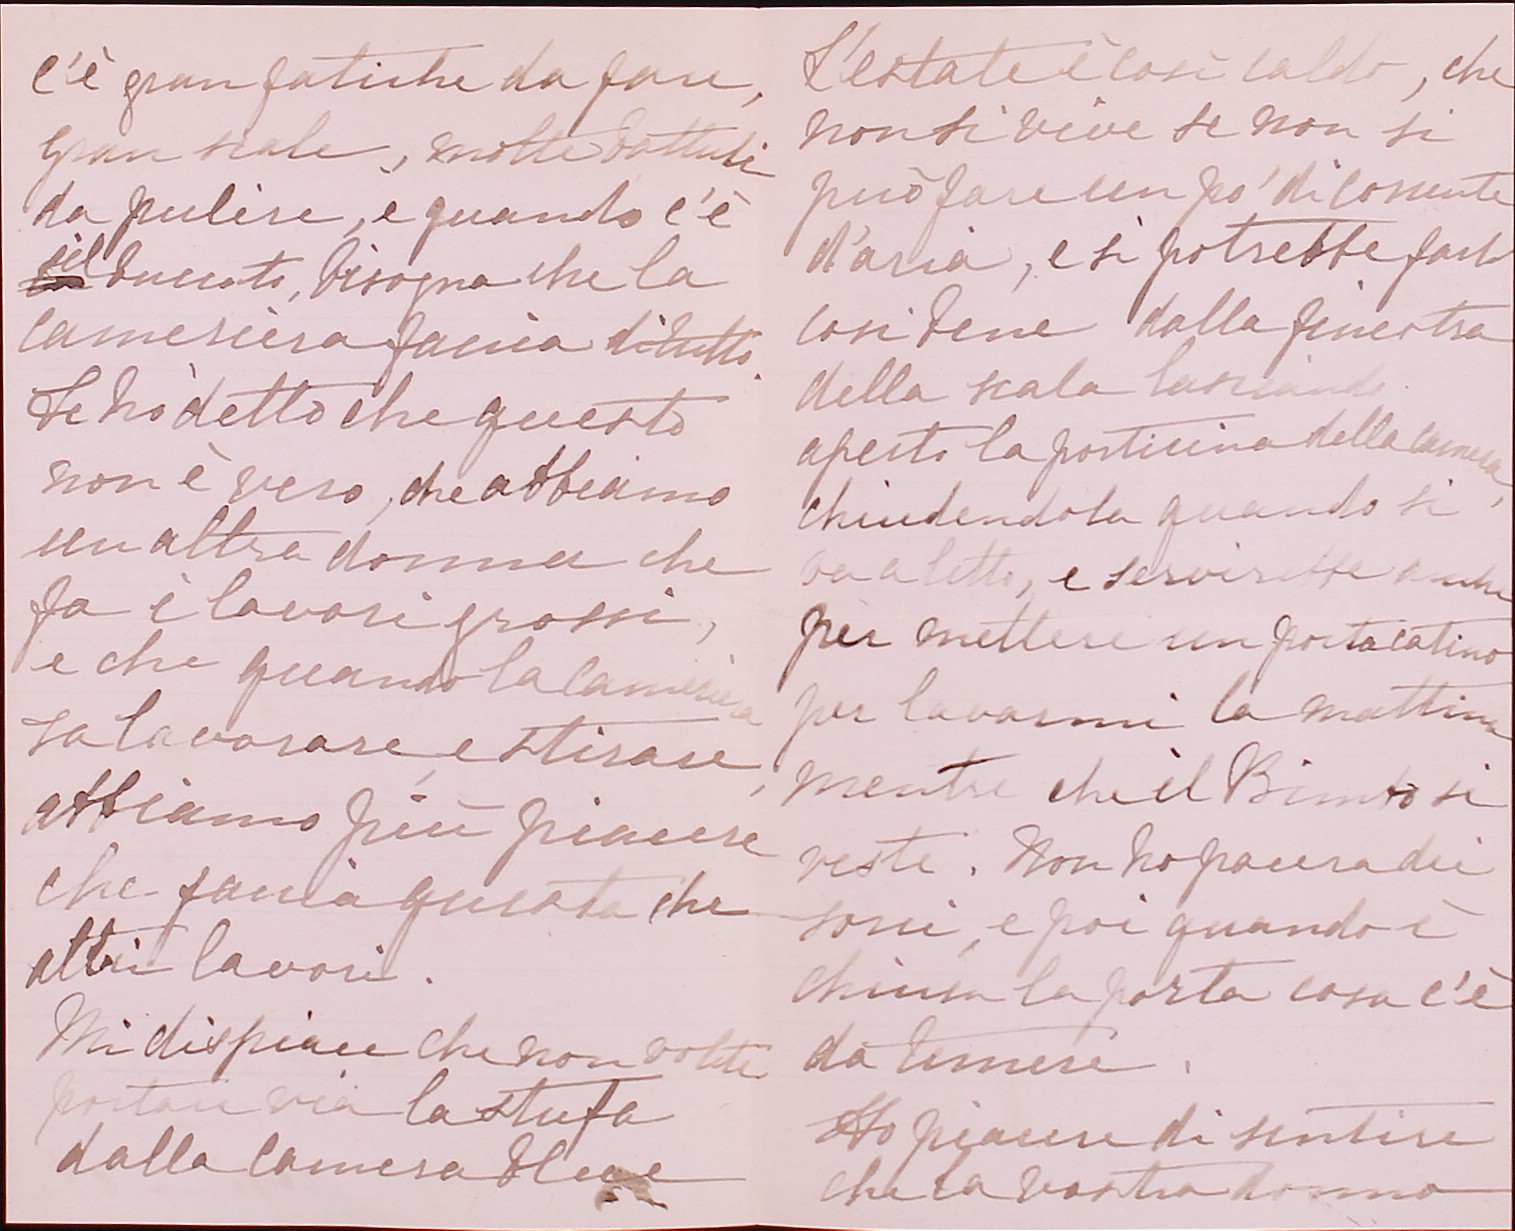 c'è gran fatiche da fare,
gran scale, molte battuti
da pulire, e quando c'è
il bucato, bisogna che la
cameriera faccia di tutto.
Le hò detto che questo
non è vero, che abbiamo
un altra donna che
fa i lavori grossi,
e che quando la cameriera
sa lavorare, e stirare,
abbiamo più piacere
che faccia questo che
altri lavori.
Mi dispiace che non volete
portare via la stufa
dalla camera bleue
L'estate è così caldo, che
non si vive se non si
può fare un po' di corrente
d'aria, e si potrebbe farlo
così bene dalla finestra
della scala lasciando
aperto la porticina della camera,
chiudendola quando si
va a letto, e servirebbe anche
per mettere un portacatino
per lavarmi la mattina
mentre che il Bimbo si
veste. Non ho paura dei
sorci, e poi quando è
chiusa la porta cosa c'è
da temere.
Ho piacere di sentire
che la vostra donna